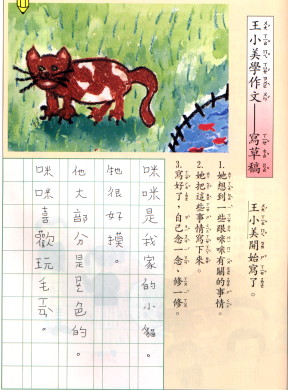 王小美學作文— 寫草稿
王小美開始寫了。
1. 她想到一些跟咪咪有關的事情。
2. 她把這些事情寫下來。
3. 寫好了，自己念一念、修一修。
咪咪是我家的小貓。
牠很好摸。
他大部分是色的。
咪咪喜歡玩毛。